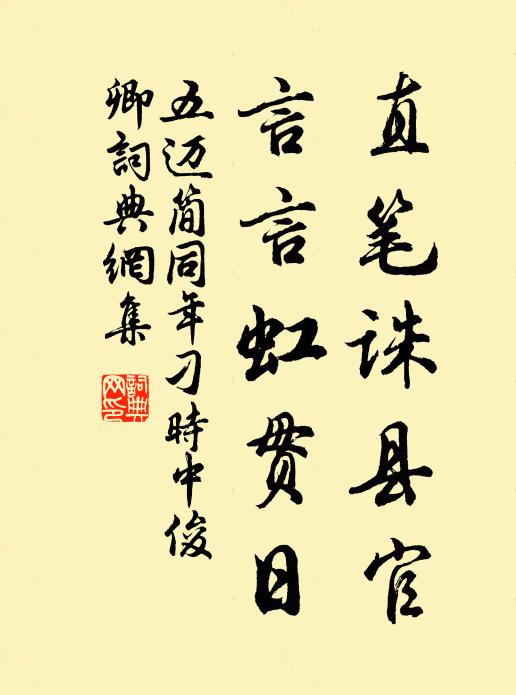 直笔诛县官
言言虹贯日
五迈简同年刁时中俊
卿詞典網集
詞典网印